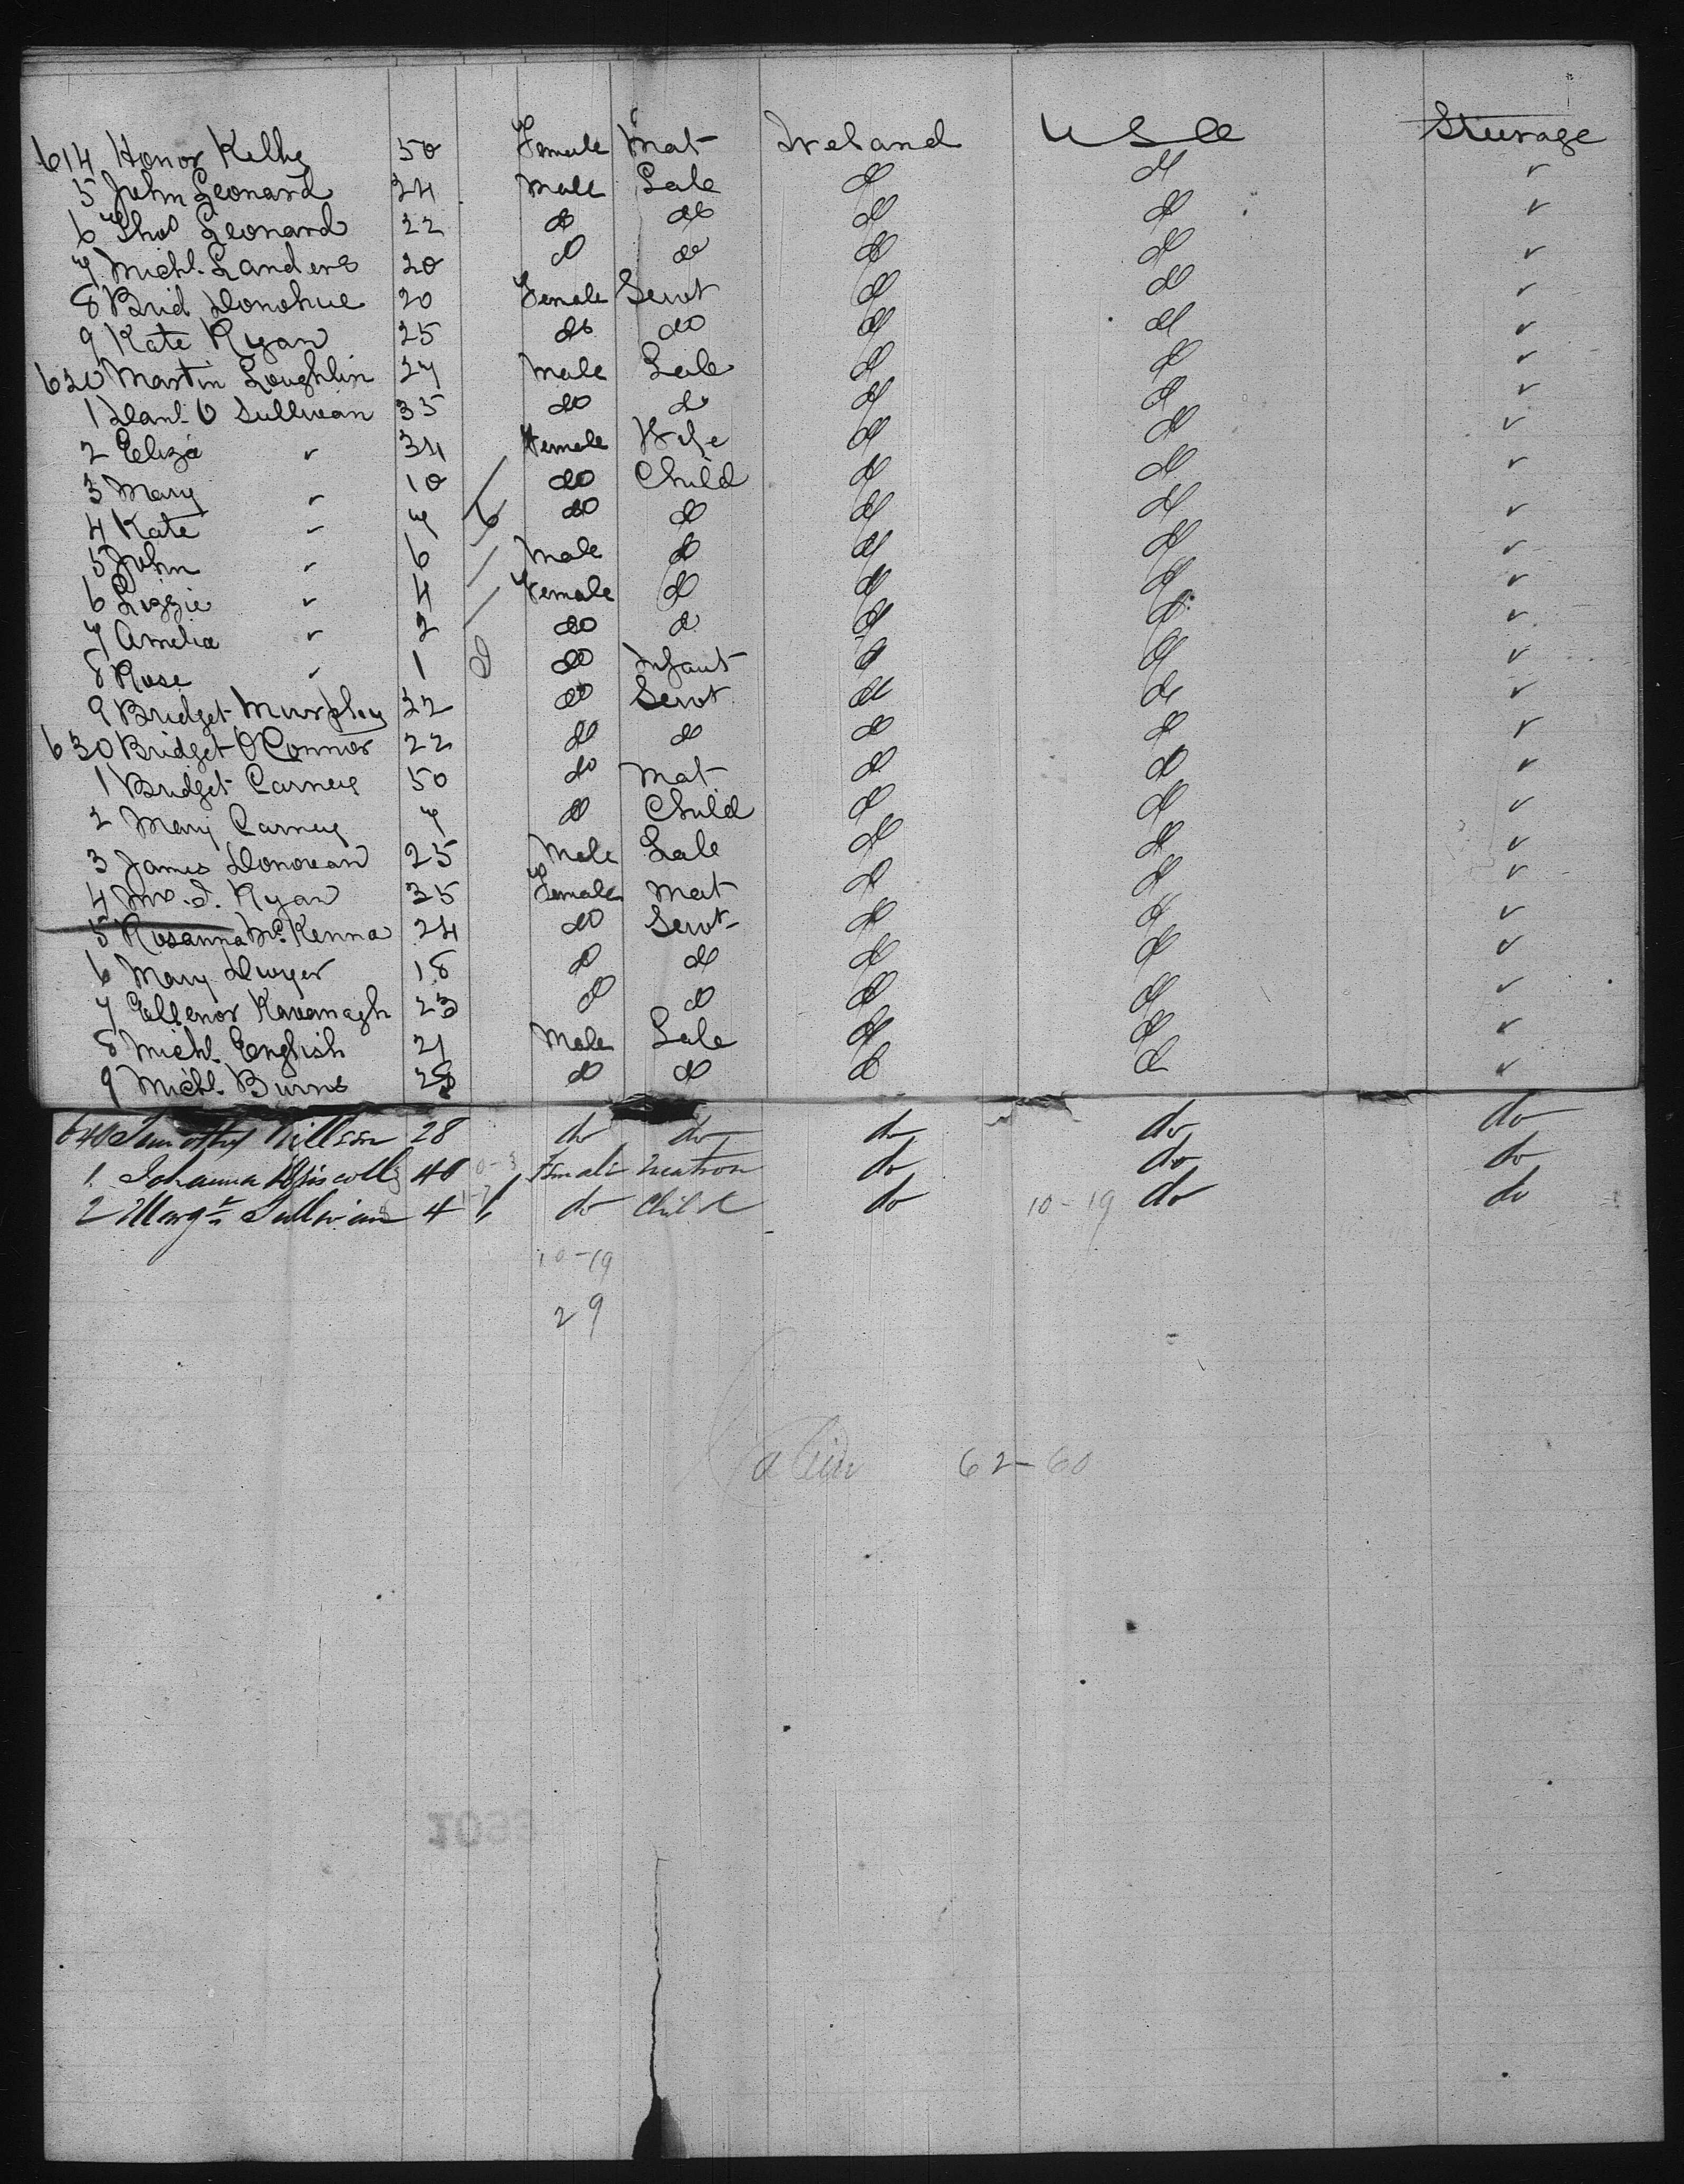 614 Honor Kelly 50 Female Mat Ireland U S A Steerage
5 John Leonard 24 Male Labr do do ✓
6 Thos Leonard 22 do do do do ✓
7 Michl. Landers 20 do do do do ✓
8 Brid Donohue 20 Female Servt do do ✓
9 Kate Ryan 25 do do do do ✓
620 Martin Loughlin 27 Male Labr do do ✓
1 Danl. O Sullivan 35 do do do do ✓
2 Eliza ✓ 34 Female Wife do do ✓
3 Mary ✓ 10 / do Child do do ✓
4 Kate ✓ 7 do do do do ✓
5 John ✓ 6 / Male do do do ✓
6 Lizzie ✓ 4 / Female do do do ✓
7 Amelia ✓ 2 do do do do ✓
8 Rose ✓ 1 do Infant do do ✓
9 Bridget Murphy 22 do Servt do do ✓
630 Bridget O'Connor 22 do do do do ✓
1 Bridget Carney 50 do Mat do do ✓
2 Mary Carney 7 do Child do do ✓
3 James Donovan 25 Male Labr do do ✓
4 Ryan 35 Female Mat do do ✓
5 Rosanna McKenna 24 do Servt do do ✓
6 Mary Dwyer 18 do do do do ✓
7 Ellenor Kavanagh 23 do do do do ✓
8 Michl. English 21 Male Labr do do ✓
9 Michl. Burns 28 do do do do ✓
640 Timothy 28 do do do do do
1. Johanna Driscoll 40 Female Matron do do do
2 Margt Sullivan 4 do Child do 10-19 do do
10-19
29
Cabin 62-60